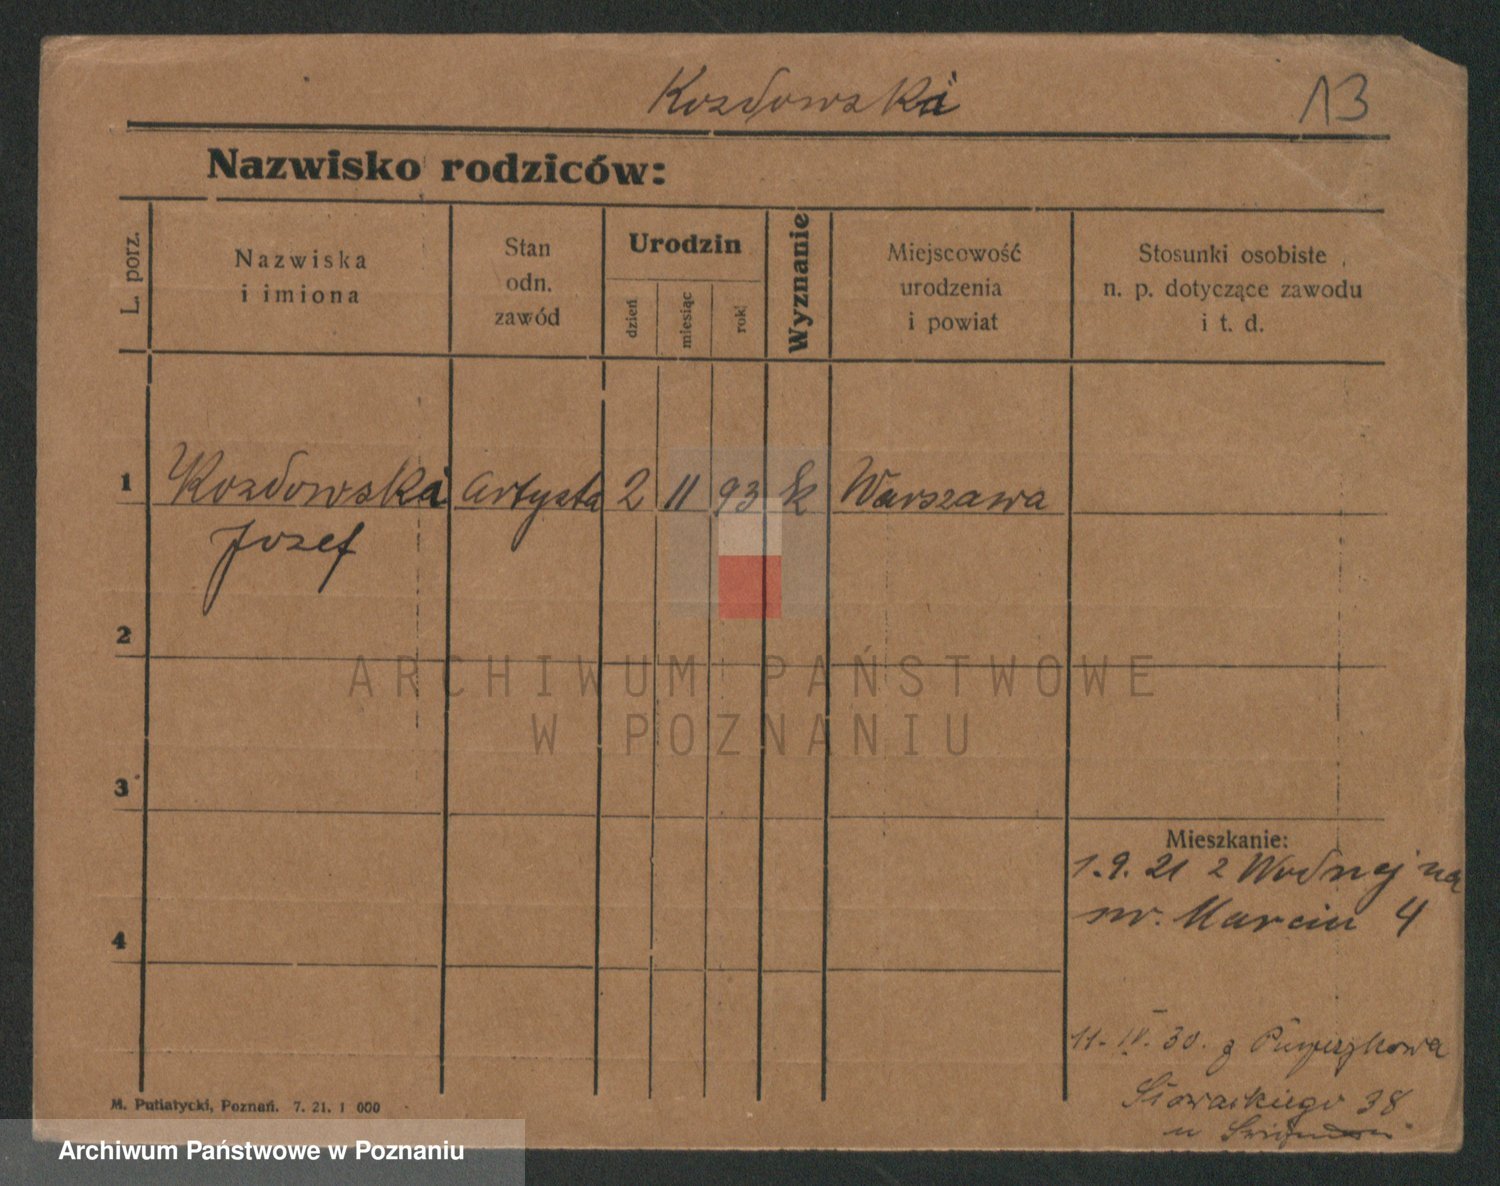 Kozdowski
13
Nazwisko rodziców:
L. porz.
Nazwiska
i imiona
Stan
odn.
zawód
Urodzin
dzień
miesiąc
rok
Wyznanie
Miejscowość
urodzenia
i powiat
Stosunki osobiste
n. p. dotyczące zawodu
i t. d.
1 Kozdowski artysta 2 11 93 k Warszawa
Jozef
2
3
4
Mieszkanie:
1.9.21 z Wodnej na
Marcin 4
11. IV. 30. z
Słowackiego 38
u
M. Putiatycki, Poznań. 7. 21. 1 000
ARCHIWUM PAŃSTWOWE
W POZNANIU
Archiwum Państwowe w Poznaniu